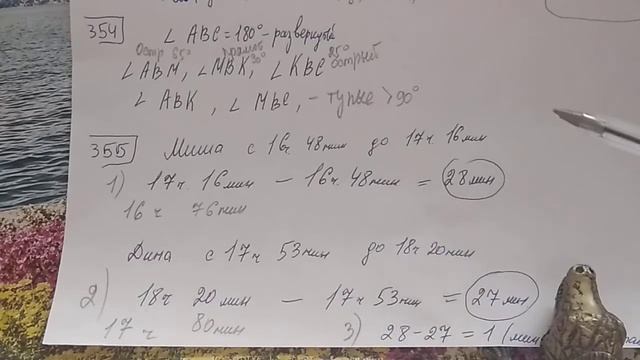 354 ∠ ABC = 180° - развернутый
Остр 65° прямой 90° 25° острый
∠ ABM, ∠ MBK, ∠ KBC
∠ ABK, ∠ MBC, - тупые > 90°
355 Миша с 16ч 48мин до 17ч 16мин
1) 17ч. 16мин - 16ч. 48мин = 28мин
16ч 76мин
Дина с 17ч 53мин до 18ч 20мин
2) 18ч 20мин - 17ч 53мин = 27мин
17ч 80мин 3) 28-27 = 1 (мин